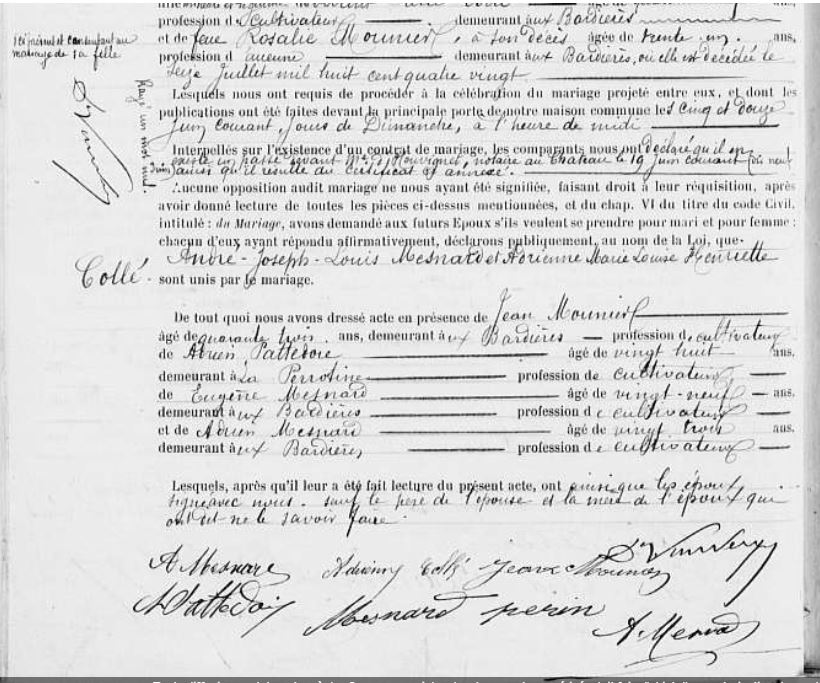 profession de Cultivateur demeurant aux Bardières
et de feue Rosalie Mounier, à son décès âgée de trente un ans,
profession d'aucune demeurant aux Bardières, où elle est décédée le
seize juillet mil huit cent quatre vingt
ici présent et consentant au
mariage de sa fille
Lesquels nous ont requis de procéder à la célébration du mariage projeté entre eux, et dont les
publications ont été faites devant la principale porte de notre maison commune les cinq et douze
Juin courant, jours de Dimanche, à l'heure de midi
Rayé un mot nul.
Interpellés sur l'existence d'un contrat de mariage, les comparants nous ont déclaré qu'il en
existe un passé devant Me notaire au Chateau le 19 Juin courant dix neuf
Juin ainsi qu'il résulte du certificat ci annexé.
Aucune opposition audit mariage ne nous ayant été signifiée, faisant droit à leur réquisition, après
avoir donné lecture de toutes les pièces ci-dessus mentionnées, et du chap. VI du titre du code Civil,
intitulé : du Mariage, avons demandé aux futurs Epoux s'ils veulent se prendre pour mari et pour femme :
chacun d'eux ayant répondu affirmativement, déclarons publiquement, au nom de la Loi, que
André-Joseph-Louis Mesnard et Adrienne Marie Louise Henriette
Collé - sont unis par le mariage.
De tout quoi nous avons dressé acte en présence de Jean Mounier
âgé de quarante trois ans, demeurant aux Bardières profession de cultivateur
de Adrien Pattedoie âgé de vingt huit ans.
demeurant à la Perrotine profession de cultivateur
de Eugène Mesnard âgé de vingt-neuf ans.
demeurant aux Bardières profession de cultivateur
et de Adrien Mesnard âgé de vingt trois ans.
demeurant aux Bardières profession de cultivateur
Lesquels, après qu'il leur a été fait lecture du présent acte, ont ainsi que les époux
signé avec nous. sauf le père de l'épouse et la mère de l'époux qui
ont dit ne le savoir faire.
A Mesnard Adrienne Collé Jean Mounier
A Pattedoie Mesnard perin
A. Menard